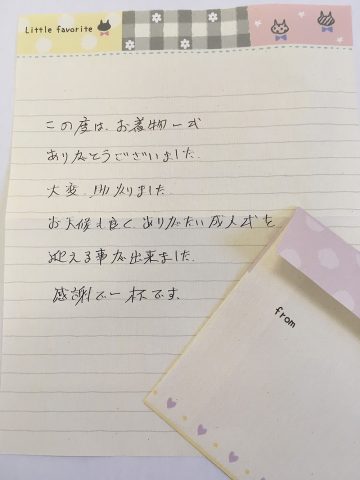 Little favorite
この度は、お着物一式
ありがとうございました.
大変、助かりました.
お天候も良く、ありがたい成人式を
迎える事が出来ました.
感謝で一杯です.
from